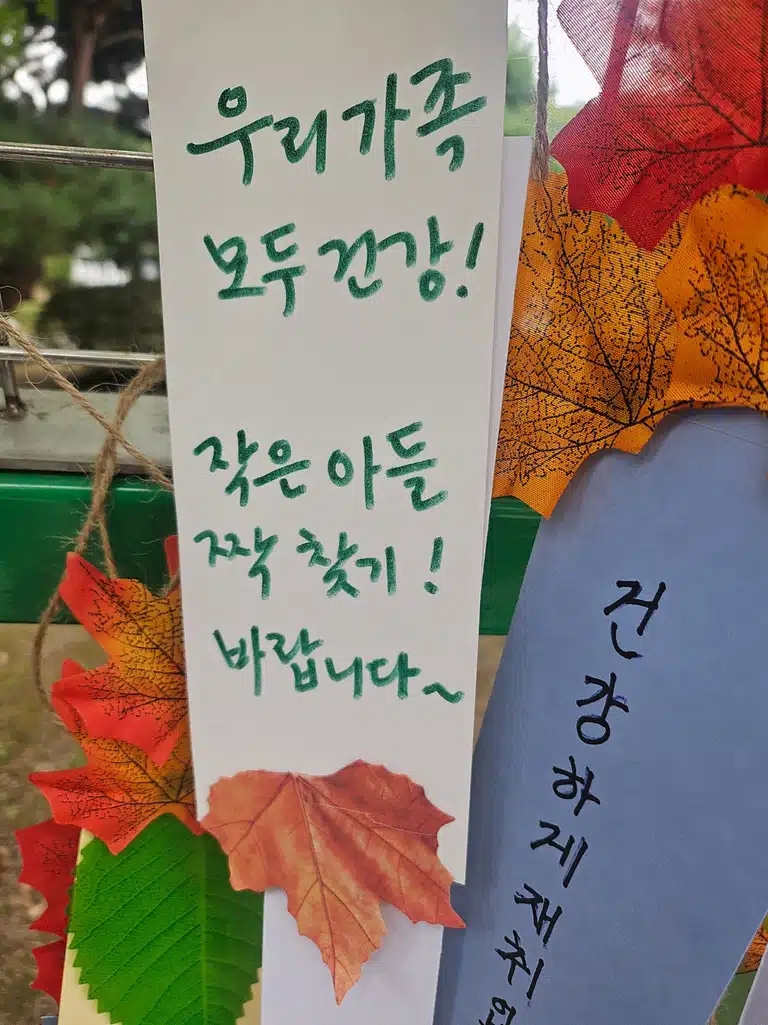 우리 가족
모두 건강!
작은 아들
짝 찾기!
바랍니다~
건강하게 재취